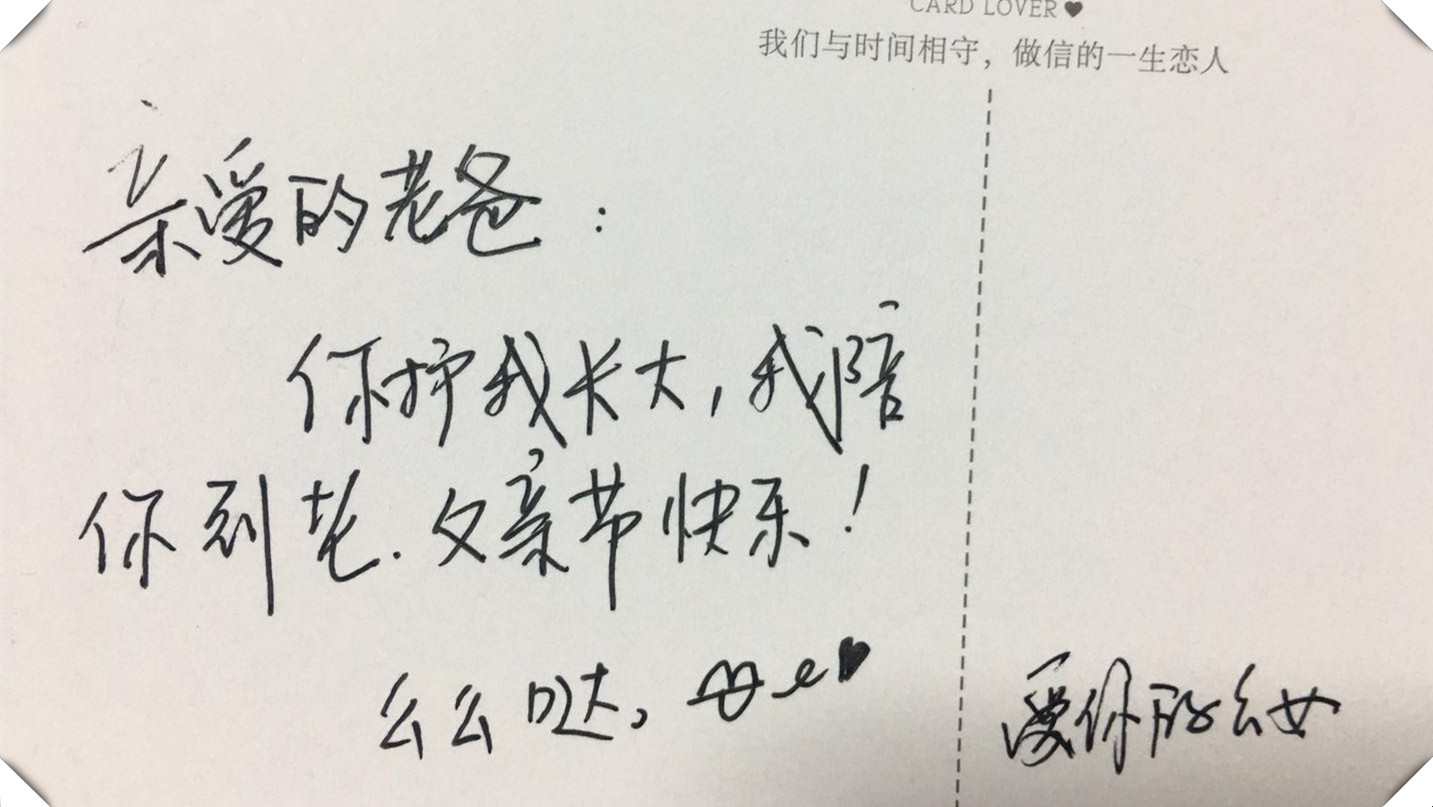 CARD LOVER♥
我们与时间相守，做信的一生恋人
亲爱的老爸：
你护我长大，我陪
你到老.父亲节快乐！
么么哒，
爱你的幺女